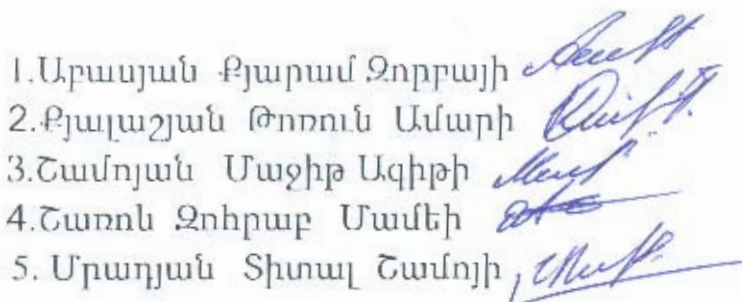 1.Աբասյան Քյարամ Չորբայի
2.Քյալաշյան Թոռուն Ամարի
3.Շամոյան Մաջիթ Ազիթի
4.Շառոն Զոհրաբ Մամեի
5. Մրադյան Տիտալ Շամոյի